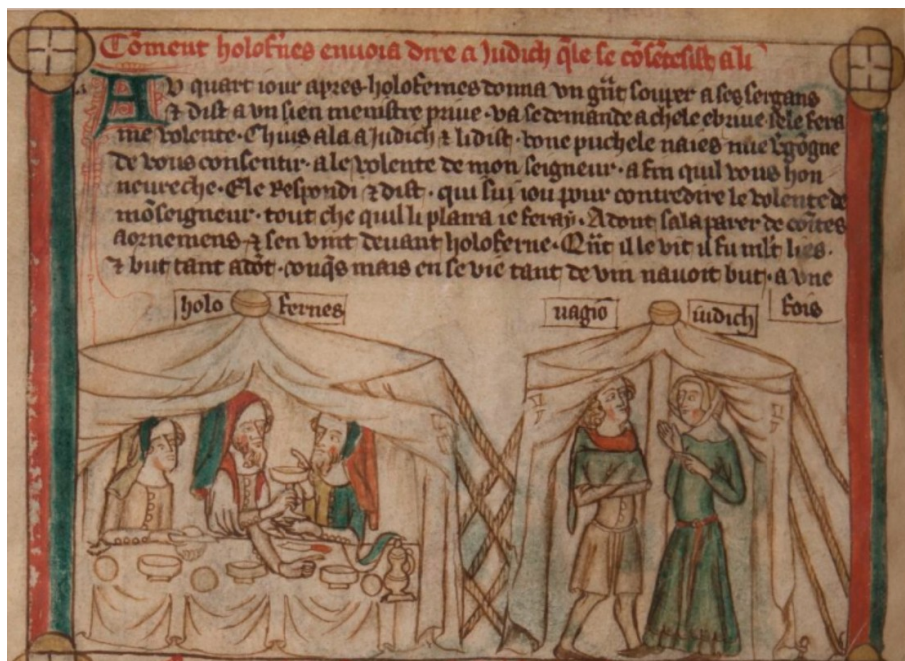 Cõment holof'nes enuoia dire a Judich q̃le se cõsẽtesist a li
AV quart iour apres · holofernes donna vn gñt souper a ses sergans
⁊ dist a vn sien menistre priue · va se demande a chele ebriue sele fera
me volente · Chius ala a Judich ⁊ li dist · bone puchele naies nue v'gogne
de vous consentir · a le volente de mon seigneur · a fin quil vous hon
neureche · Ele Respondi ⁊ dist · qui sui iou pour contredire le volente de
mõseigneur · tout che quil li plaira ie feray · Adont sala parer de cointes
aornemens ⁊ sen vint deuant holoferne · Qñt il le vit il fu ml't lies ·
⁊ but tant adõt · conq̃s mais en se vie tant de vin nauoit but · a vne
fois
holo fernes
uagio
iudich